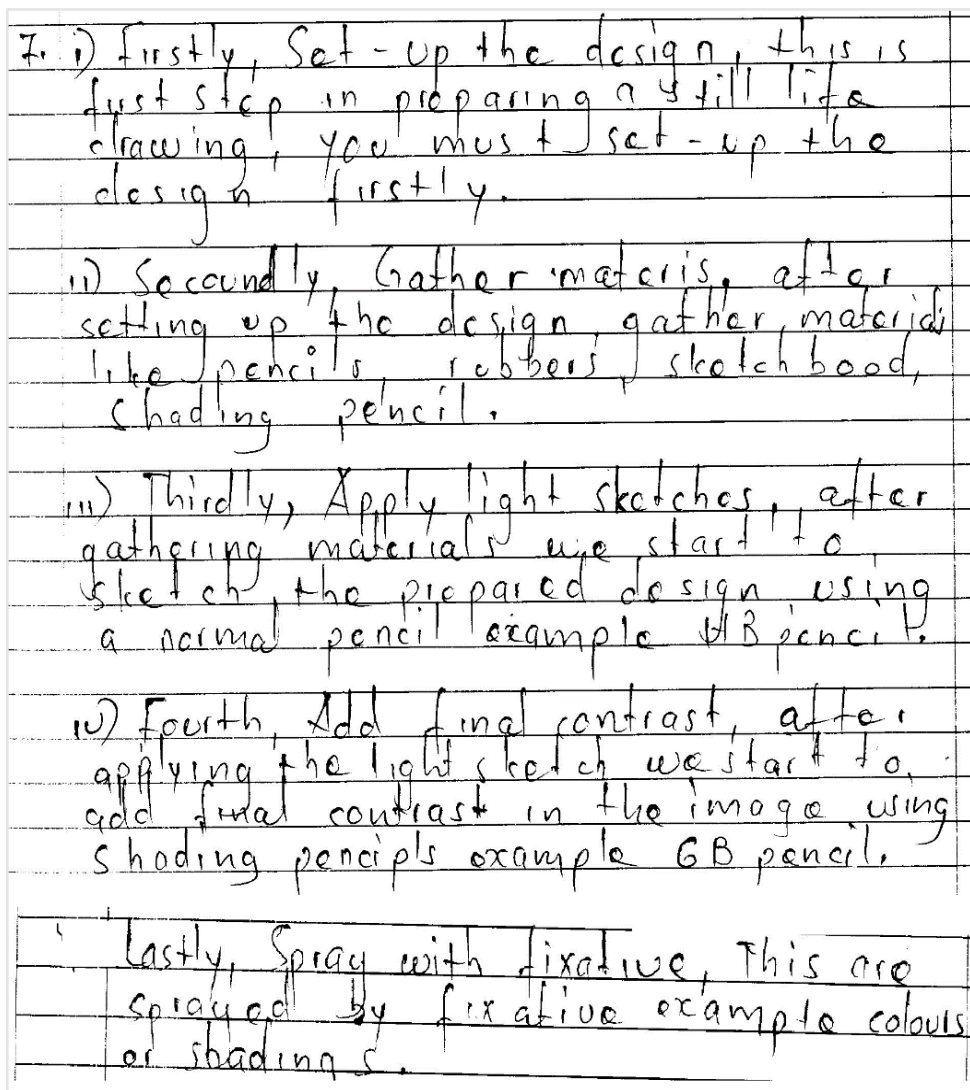 7. i) Firstly, Set-up the design, this is
first step in preparing a still life
drawing, you must set-up the
design firstly.
ii) Secoundly, Gather materis, after
setting up the design, gather, materials
like pencils, rubbers, sketch bood,
shading pencil.
iii) Thirdly, Apply light sketches, after
gathering materials we start to
sketch, the prepared design using
a normal pencil example HB pencil.
iv) Fourth, Add final contrast, after
applying the light sketch we start to
add final contrast in the image using
shading pencipls example 6B pencil.
Lastly, Spray with fixative, This are
sprayed by fixative example colours
or shadings.